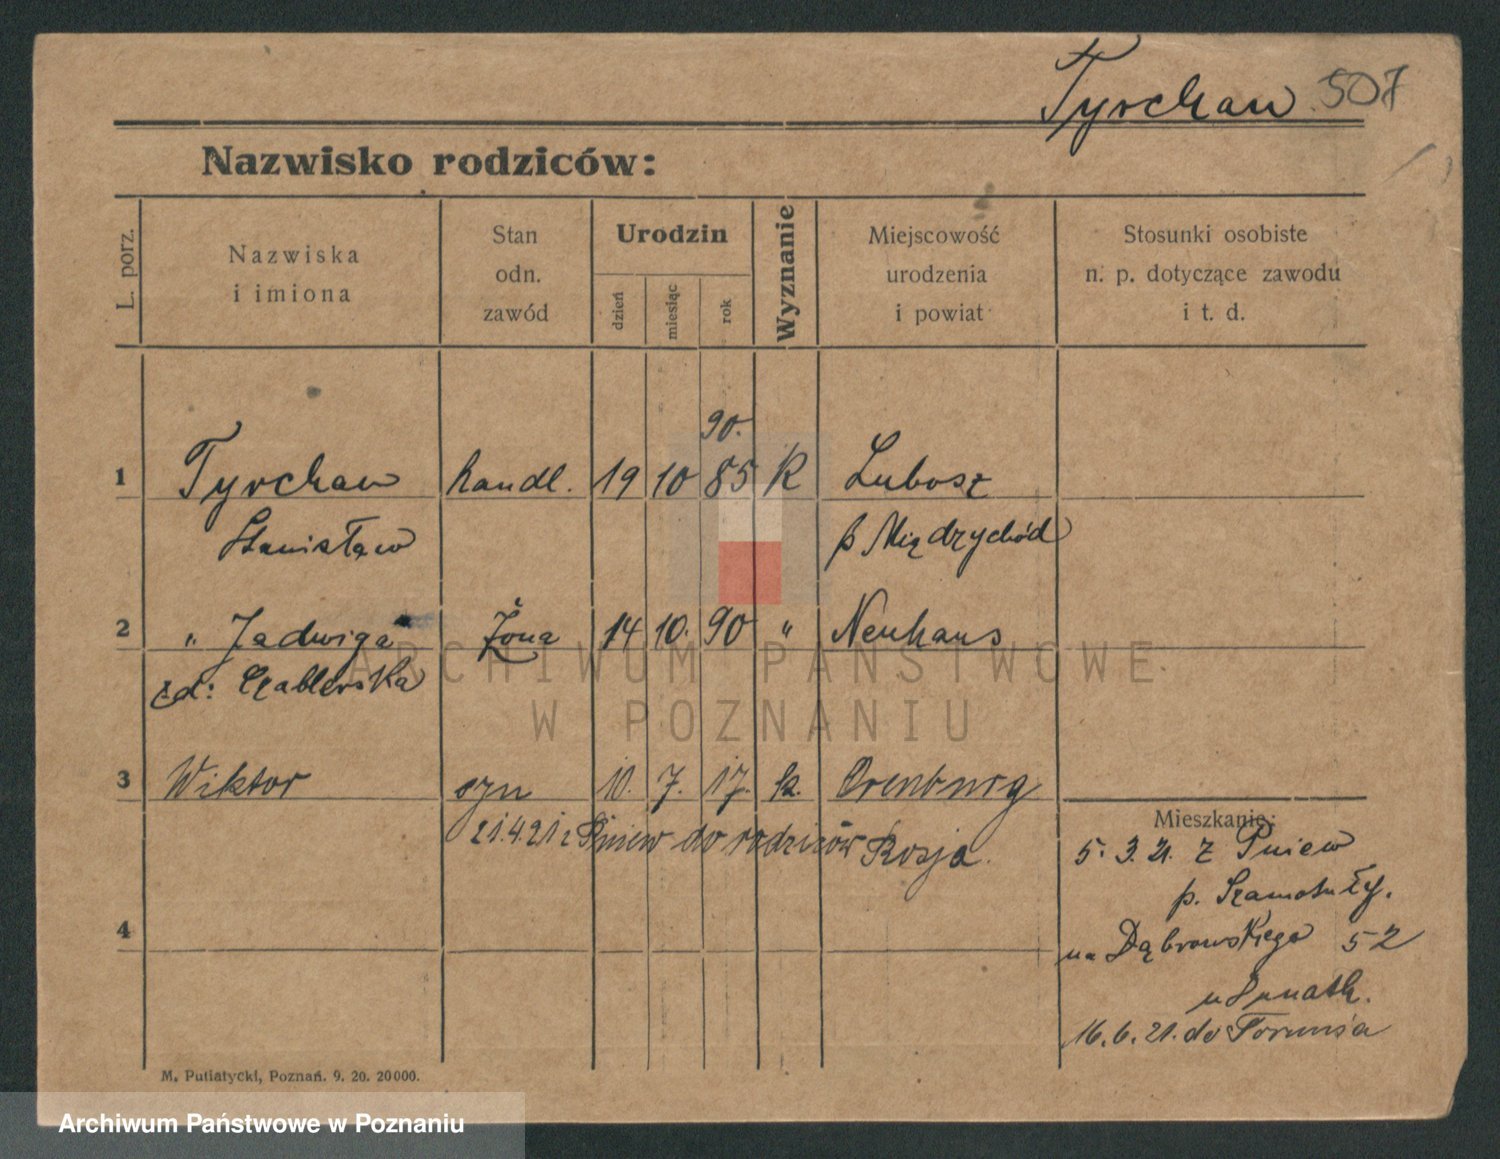 Tyrchan 507
Nazwisko rodziców:
L. porz.
Nazwiska
i imiona
Stan
odn.
zawód
Urodzin
dzień
miesiąc
rok
Wyznanie
Miejscowość
urodzenia
i powiat
Stosunki osobiste
n. p. dotyczące zawodu
i t. d.
90.
1 Tyrchan handl. 19 10 85 K Lubosz
Stanisław p Międzychód
2 " Jadwiga żona 14 10. 90 " Neuhaus
3 Wiktor syn 10. 7. 17. k. Orenburg
21.4.21 z Pniew do rodziców Rosja.
4
Mieszkanie:
5. 3. 21. z Pniew
p. Szamotuły.
na Dąbrowskiego 52
16. 6. 21. do Torunia
M. Putiatycki, Poznań. 9. 20. 20000.
ARCHIWUM PAŃSTWOWE
W POZNANIU
Archiwum Państwowe w Poznaniu